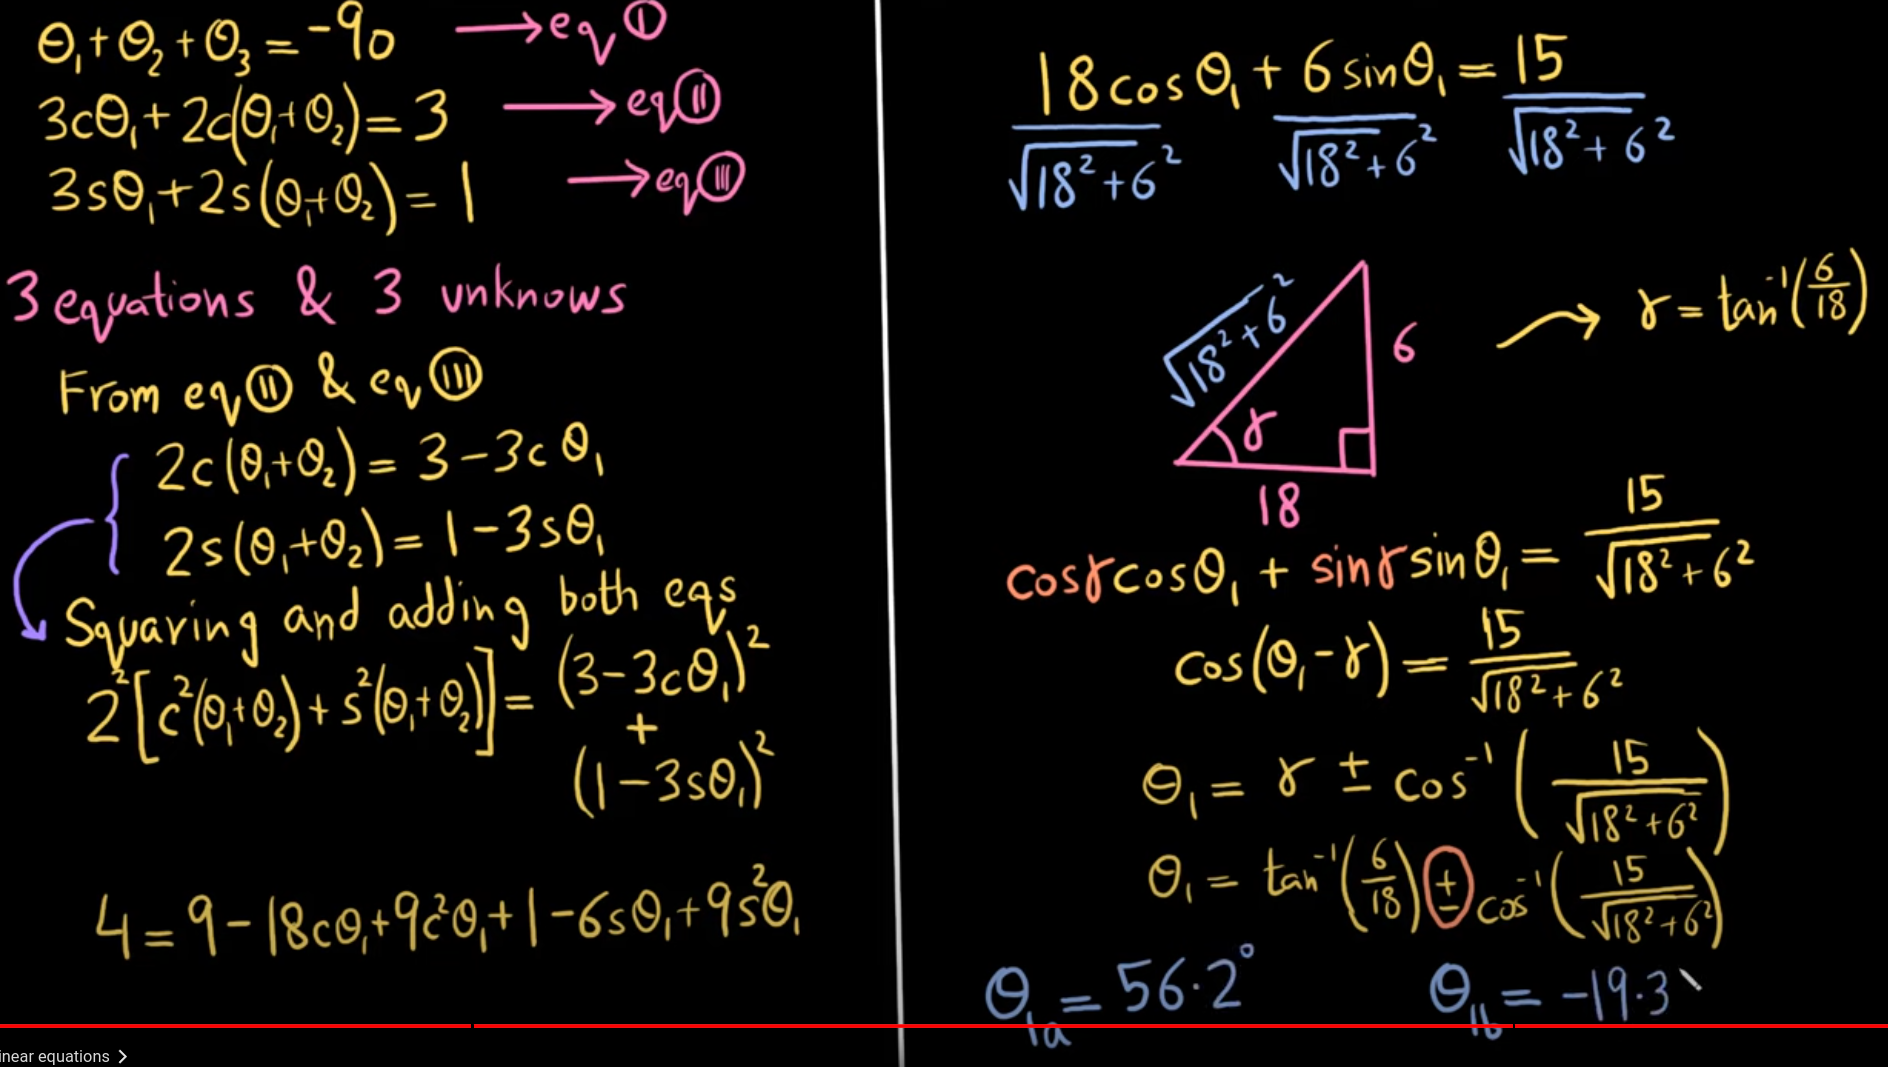 θ₁+θ₂+θ₃=-90 → eq Ⅰ
3cθ₁+2c(θ₁+θ₂)=3 → eq Ⅱ
3sθ₁+2s(θ₁+θ₂)=1 → eq Ⅲ
3 equations & 3 unknows
From eq Ⅱ & eq Ⅲ
2c(θ₁+θ₂)=3-3cθ₁
2s(θ₁+θ₂)=1-3sθ₁
Squaring and adding both eqs
2²[c²(θ₁+θ₂)+s²(θ₁+θ₂)]=(3-3cθ₁)²
+
(1-3sθ₁)²
4=9-18cθ₁+9c²θ₁+1-6sθ₁+9s²θ₁
18cosθ₁/√18²+6² + 6sinθ₁/√18²+6² = 15/√18²+6²
√18²+6²
6
γ
18
γ=tan⁻¹(6/18)
cosγcosθ₁+sinγsinθ₁=15/√18²+6²
cos(θ₁-γ)=15/√18²+6²
θ₁=γ±cos⁻¹(15/√18²+6²)
θ₁=tan⁻¹(6/18)±cos⁻¹(15/√18²+6²)
θ₁a=56.2° θ₁b=-19.3
inear equations >